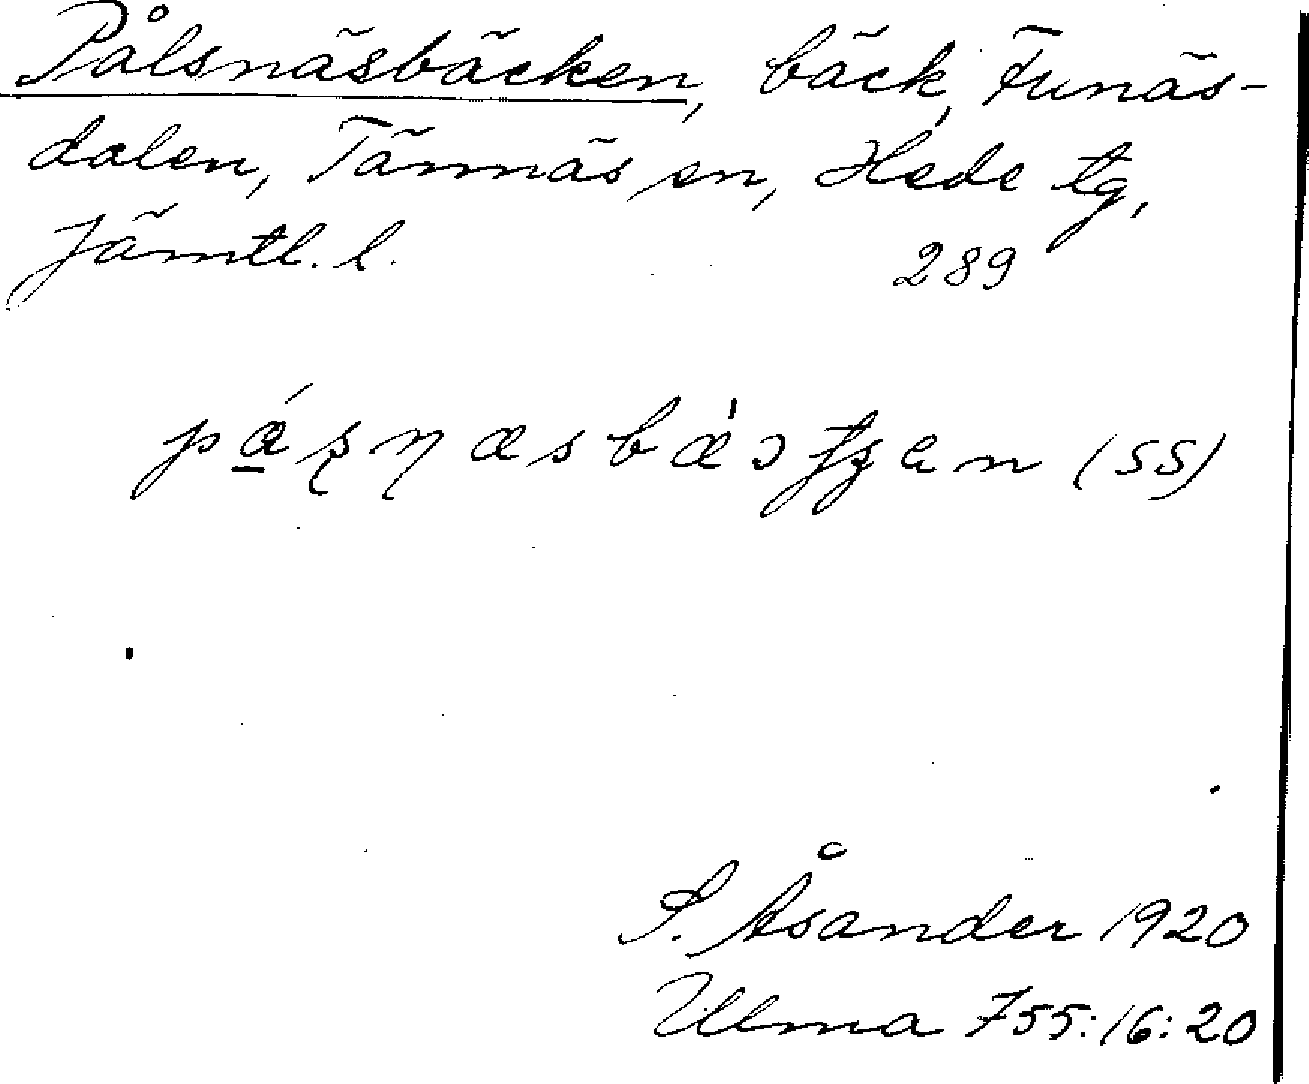 Pålsnäsbäcken, bäck, Funäs-
dalen, Tännäs sn, Hede tg,
Jämtl. l. 289
(SS)
S. Åsander 1920
Ulma 755:16:20